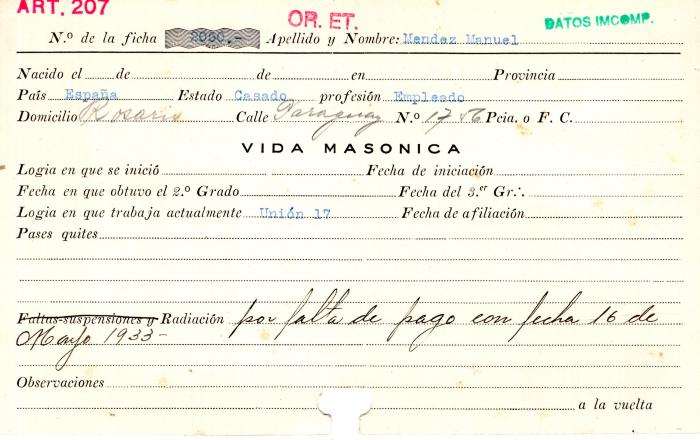 ART. 207
OR. ET.
DATOS IMCOMP.
N.º de la ficha 2060.- Apellido y Nombre: Mendez Manuel
Nacido el de de en Provincia
País España Estado Casado profesión Empleado
Domicilio Rosario Calle Paraguay N.º 1756 Pcia. o F. C.
VIDA MASONICA
Logia en que se inició Fecha de iniciación
Fecha en que obtuvo el 2.º Grado Fecha del 3.er Gr∴
Logia en que trabaja actualmente Unión 17 Fecha de afiliación
Pases quites
Faltas-suspensiones y Radiación por falta de pago con fecha 16 de
Mayo 1933-
Observaciones
a la vuelta